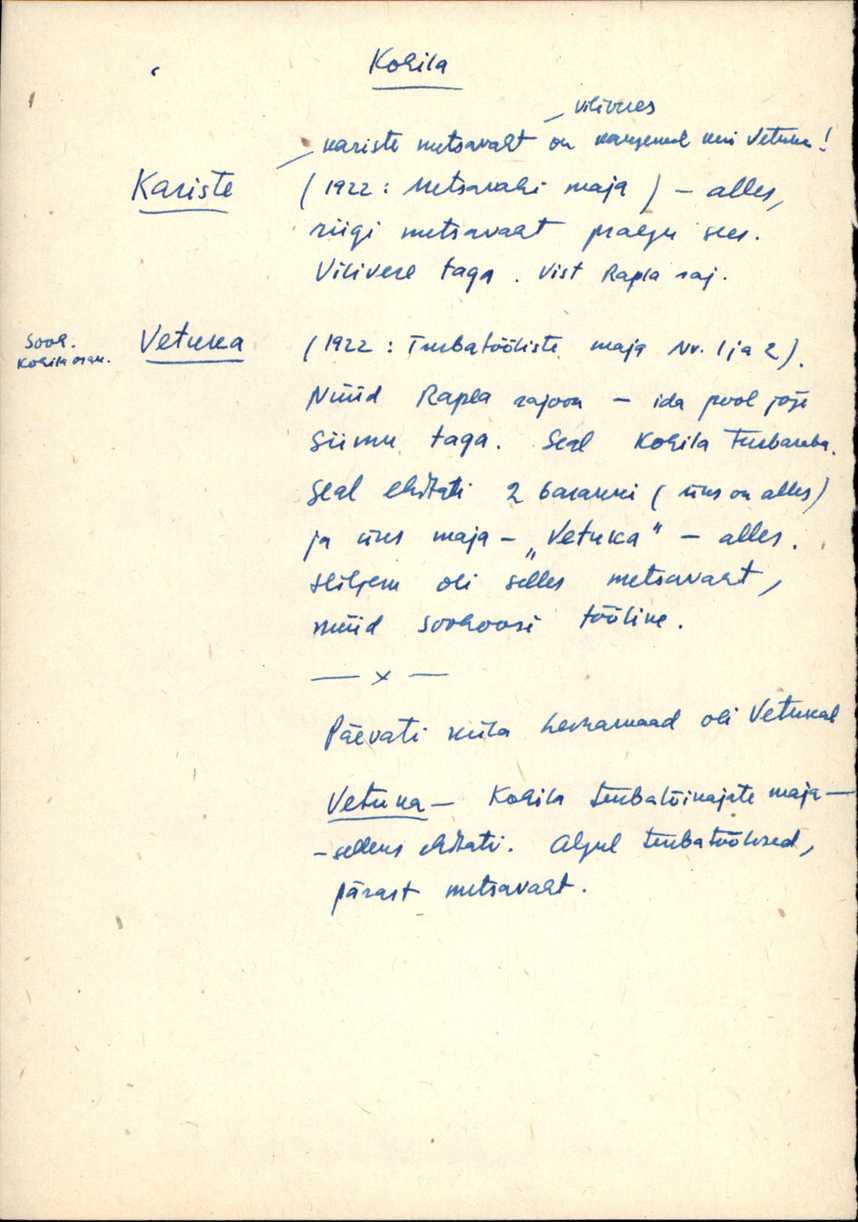 Kohila
Vilivres
Kariste metsavaht on kaugemal kui Vetuka!
Kariste (1922: Metsavahi maja) – alles,
riigi metsavaht praegu sees.
Vilivere taga. Vist Rapla raj.
Sooh.
Kohila osak.
Vetuka (1922: Turbatööliste maja Nr. 1 ja 2).
Nüüd Rapla rajoon – ida pool jõge
Siimu taga. Seal Kohila Turbaraba.
Seal ehitati 2 barakki (üks on alles)
ja üks maja – „Vetuka" – alles.
Hiljem oli selles metsavaht,
nüüd soohoosi tööline.
— x —
Päevati küla heinamaad oli Vetukal
Vetuka – Kohila turbalõikajate maja –
– selleks ehitati. Algul turbatöölised,
pärast metsavaht.